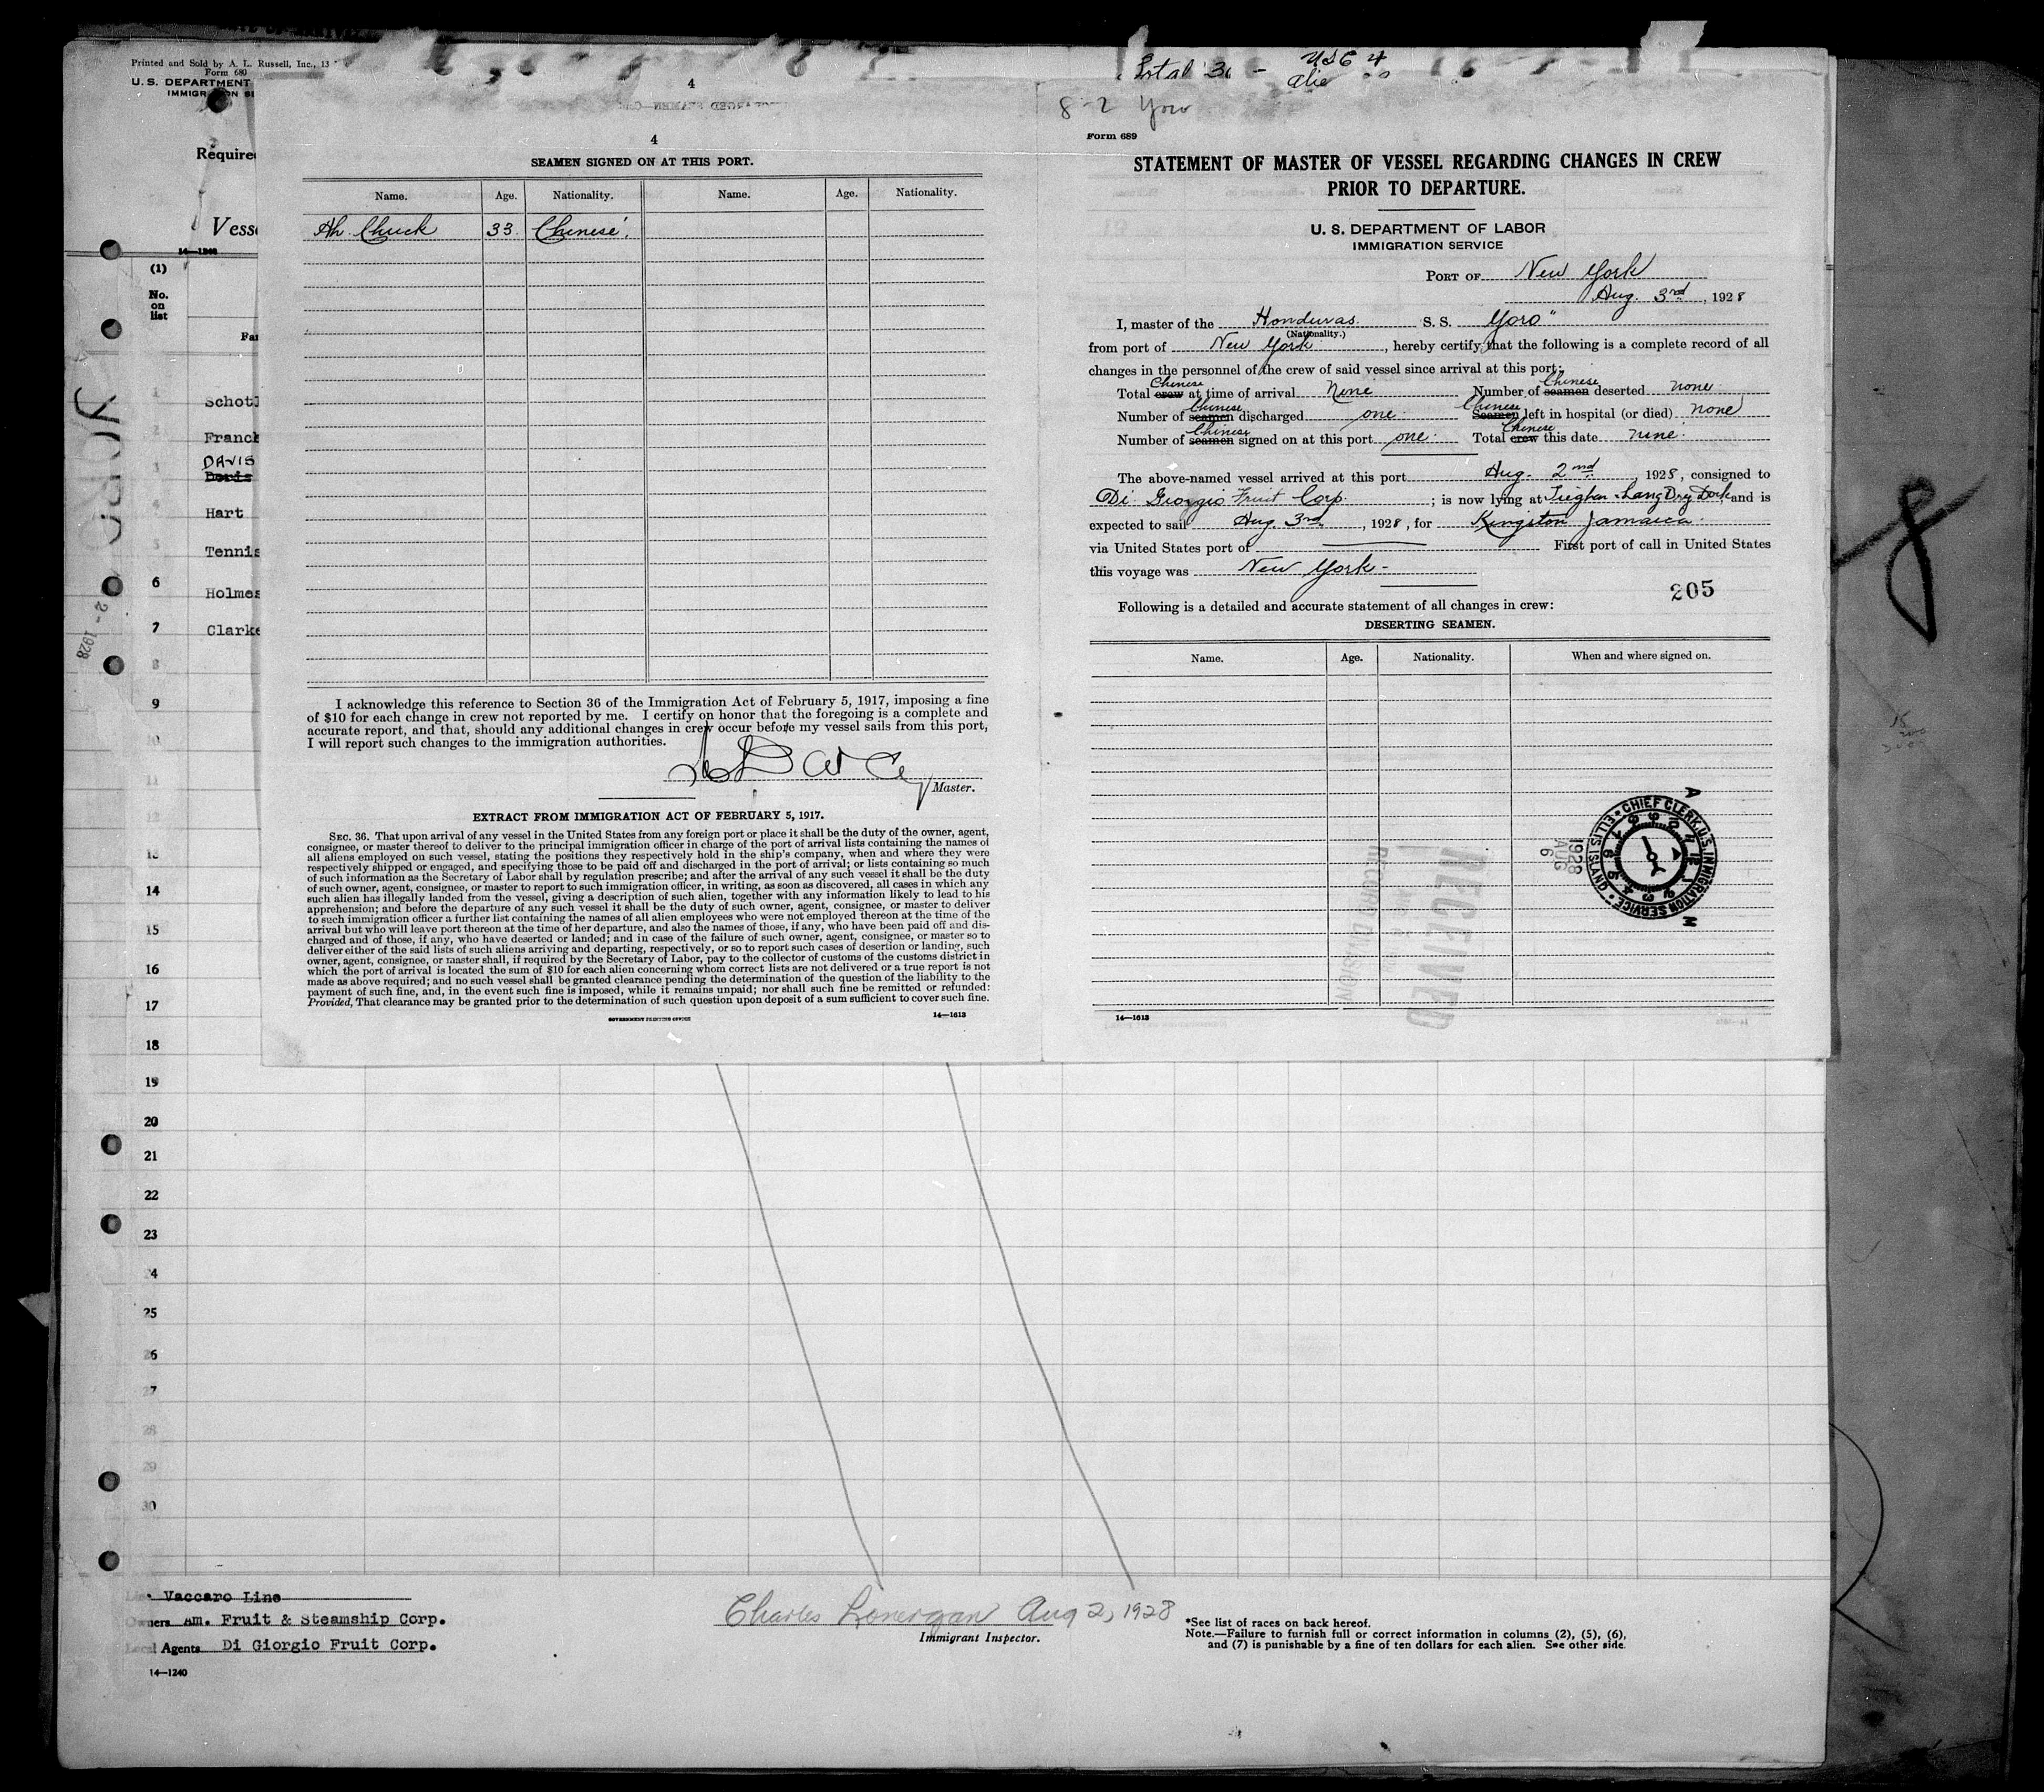 Printed and Sold by A. L. Russell, Inc., 13
Form 680
U. S. DEPARTMENT
IMMIGRATION SE
Require
Vess
14—1240
(1)
No.
on
list
Fa
1
Schotl
2
Franck
DAVIS
3
Davis
4
Hart
5
Tennis
6
Holmes
7
Clarke
8
9
10
11
12
13
14
15
16
17
18
19
20
21
22
23
24
25
26
27
28
29
30
YORO
2 - 1928
4
4
SEAMEN SIGNED ON AT THIS PORT.
Name. Age. Nationality. Name. Age. Nationality.
Ah Chuck 33 Chinese.
I acknowledge this reference to Section 36 of the Immigration Act of February 5, 1917, imposing a fine
of $10 for each change in crew not reported by me. I certify on honor that the foregoing is a complete and
accurate report, and that, should any additional changes in crew occur before my vessel sails from this port,
I will report such changes to the immigration authorities.
Master.
EXTRACT FROM IMMIGRATION ACT OF FEBRUARY 5, 1917.
SEC. 36. That upon arrival of any vessel in the United States from any foreign port or place it shall be the duty of the owner, agent,
consignee, or master thereof to deliver to the principal immigration officer in charge of the port of arrival lists containing the names of
all aliens employed on such vessel, stating the positions they respectively hold in the ship's company, when and where they were
respectively shipped or engaged, and specifying those to be paid off and discharged in the port of arrival; or lists containing so much
of such information as the Secretary of Labor shall by regulation prescribe; and after the arrival of any such vessel it shall be the duty
of such owner, agent, consignee, or master to report to such immigration officer, in writing, as soon as discovered, all cases in which any
such alien has illegally landed from the vessel, giving a description of such alien, together with any information likely to lead to his
apprehension; and before the departure of any such vessel it shall be the duty of such owner, agent, consignee, or master to deliver
to such immigration officer a further list containing the names of all alien employees who were not employed thereon at the time of the
arrival but who will leave port thereon at the time of her departure, and also the names of those, if any, who have been paid off and dis-
charged and of those, if any, who have deserted or landed; and in case of the failure of such owner, agent, consignee, or master so to
deliver either of the said lists of such aliens arriving and departing, respectively, or so to report such cases of desertion or landing, such
owner, agent, consignee, or master shall, if required by the Secretary of Labor, pay to the collector of customs of the customs district in
which the port of arrival is located the sum of $10 for each alien concerning whom correct lists are not delivered or a true report is not
made as above required; and no such vessel shall be granted clearance pending the determination of the question of the liability to the
payment of such fine, and, in the event such fine is imposed, while it remains unpaid; nor shall such fine be remitted or refunded:
Provided, That clearance may be granted prior to the determination of such question upon deposit of a sum sufficient to cover such fine.
GOVERNMENT PRINTING OFFICE
14—1613
Total 3 - USC 4
Alie
8-2 Yoro
Form 689
STATEMENT OF MASTER OF VESSEL REGARDING CHANGES IN CREW
PRIOR TO DEPARTURE.
U. S. DEPARTMENT OF LABOR
IMMIGRATION SERVICE
PORT OF New York
Aug. 3rd, 1928
I, master of the Honduras S. S. Yoro"
(Nationality.)
from port of New York, hereby certify that the following is a complete record of all
changes in the personnel of the crew of said vessel since arrival at this port:
Total crew Chinese at time of arrival None Number of seamen Chinese deserted none
Number of seamen Chinese discharged one. Seamen Chinese left in hospital (or died) none
Number of seamen Chinese signed on at this port one. Total crew Chinese this date nine.
The above-named vessel arrived at this port Aug. 2nd, 1928, consigned to
Di Giorgio Fruit Corp.; is now lying at Lang Dry Dock and is
expected to sail Aug. 3rd, 1928, for Kingston Jamaica.
via United States port of First port of call in United States
this voyage was New York -
205
Following is a detailed and accurate statement of all changes in crew:
DESERTING SEAMEN.
Name. Age. Nationality. When and where signed on.
RECEIVED
RECORD DIVISION
CHIEF CLERK, U.S. IMMIGRATION SERVICE • ELLIS ISLAND •
A
M
1928
AUG
6
14—1613
Vaccaro Line
Owners Am. Fruit & Steamship Corp.
Local Agents Di Giorgio Fruit Corp.
14—1240
Charles Lonergan Aug 2, 1928
Immigrant Inspector.
*See list of races on back hereof.
Note.—Failure to furnish full or correct information in columns (2), (5), (6),
and (7) is punishable by a fine of ten dollars for each alien. See other side.